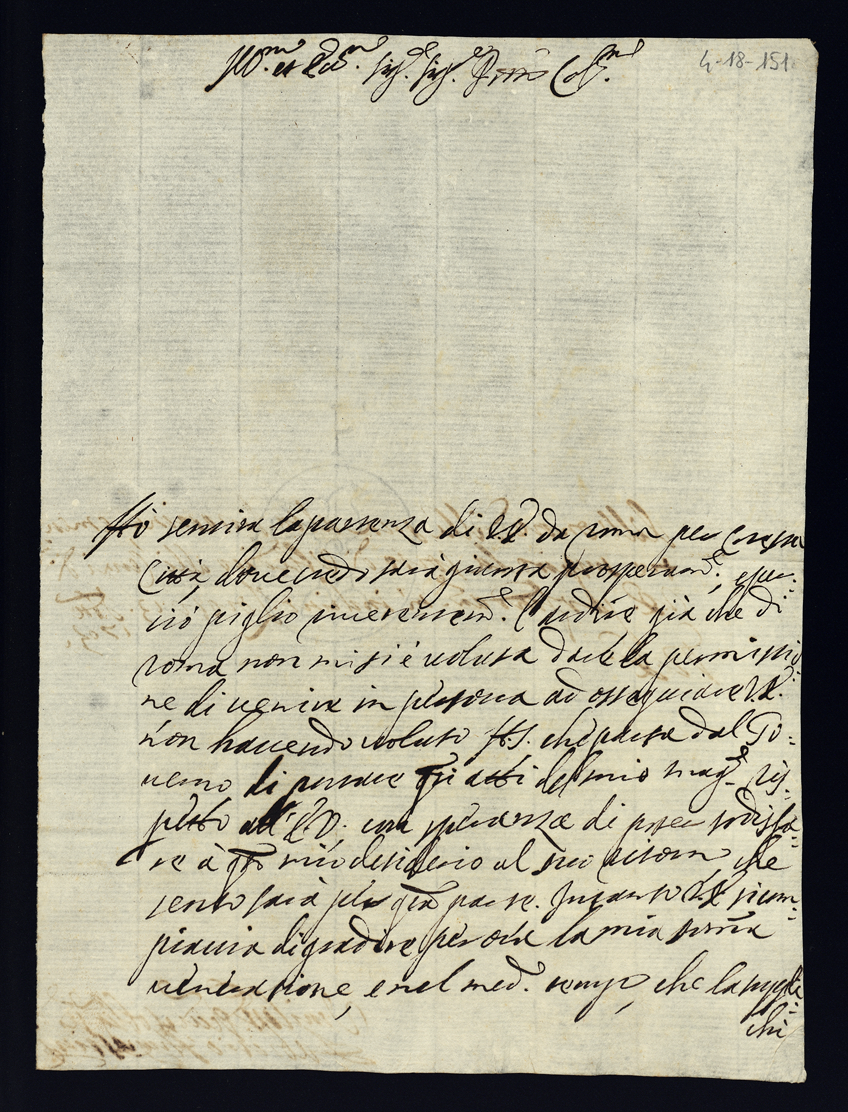 Ill.mo et Ecc.mo Sig.r Sig.r P.rone Col.mo
4-18-151
Hò sentita la partenza di V.E. da roma per cotesta
Città, dove credo sarà giunta prosperam.te, e per-
ciò piglio l'ardire già che di
roma non mi si è voluta dare la permissio-
ne di venire in persona ad ossequiare V.E.
non havendo voluto N.S. che parta dal Go-
verno di rendere q.ti atti del mio mag.re ris-
petto all'E.V. con speranza di poter sodisfa-
re à q.to mio desiderio al suo ritorno che
sento sarà per q.ta parte. Intanto V.E. si com-
piaccia di gradire per ora la mia somma
venerazione, e nel med.o tempo, che la suppli-
chi